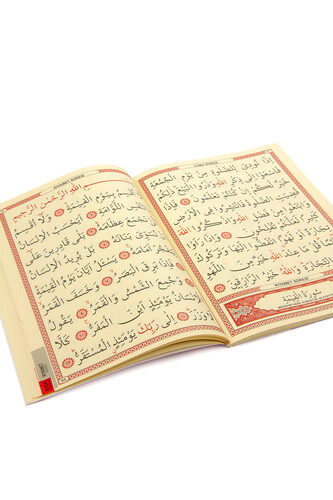 إِذَا نُودِيَ لِلصَّلٰوةِ مِنْ يَوْمِ الْجُمُعَةِ
فَاسْعَوْا إِلٰى ذِكْرِ اللّٰهِ وَذَرُوا الْبَيْعَ ذٰلِكُمْ
خَيْرٌ لَكُمْ إِنْ كُنْتُمْ تَعْلَمُونَ فَإِذَا قُضِيَتِ
الصَّلٰوةُ فَانْتَشِرُوا فِي الْأَرْضِ
وَابْتَغُوا مِنْ فَضْلِ اللّٰهِ وَاذْكُرُوا اللّٰهَ
كَثِيرًا لَعَلَّكُمْ تُفْلِحُونَ وَإِذَا رَأَوْا
تِجَارَةً أَوْ لَهْوًا انْفَضُّوا إِلَيْهَا وَتَرَكُوكَ
قَائِمًا قُلْ مَا عِنْدَ اللّٰهِ خَيْرٌ مِنَ اللَّهْوِ
وَمِنَ التِّجَارَةِ وَاللّٰهُ خَيْرُ الرَّازِقِينَ
KIYAMET SÛRESİ
سُورَةُ الْقِيٰمَةِ
KIYAMET SÛRESİ
بِسْمِ اللّٰهِ الرَّحْمٰنِ الرَّحِيمِ
لَا أُقْسِمُ بِيَوْمِ الْقِيٰمَةِ وَلَا أُقْسِمُ
بِالنَّفْسِ اللَّوَّامَةِ أَيَحْسَبُ الْإِنْسَانُ
أَلَّنْ نَجْمَعَ عِظَامَهُ بَلٰى قَادِرِينَ عَلٰى
أَنْ نُسَوِّيَ بَنَانَهُ بَلْ يُرِيدُ الْإِنْسَانُ
لِيَفْجُرَ أَمَامَهُ يَسْئَلُ أَيَّانَ يَوْمُ الْقِيٰمَةِ
فَإِذَا بَرِقَ الْبَصَرُ وَخَسَفَ الْقَمَرُ
وَجُمِعَ الشَّمْسُ وَالْقَمَرُ يَقُولُ
الْإِنْسَانُ يَوْمَئِذٍ أَيْنَ الْمَفَرُّ كَلَّا
لَا وَزَرَ إِلٰى رَبِّكَ يَوْمَئِذٍ الْمُسْتَقَرُّ